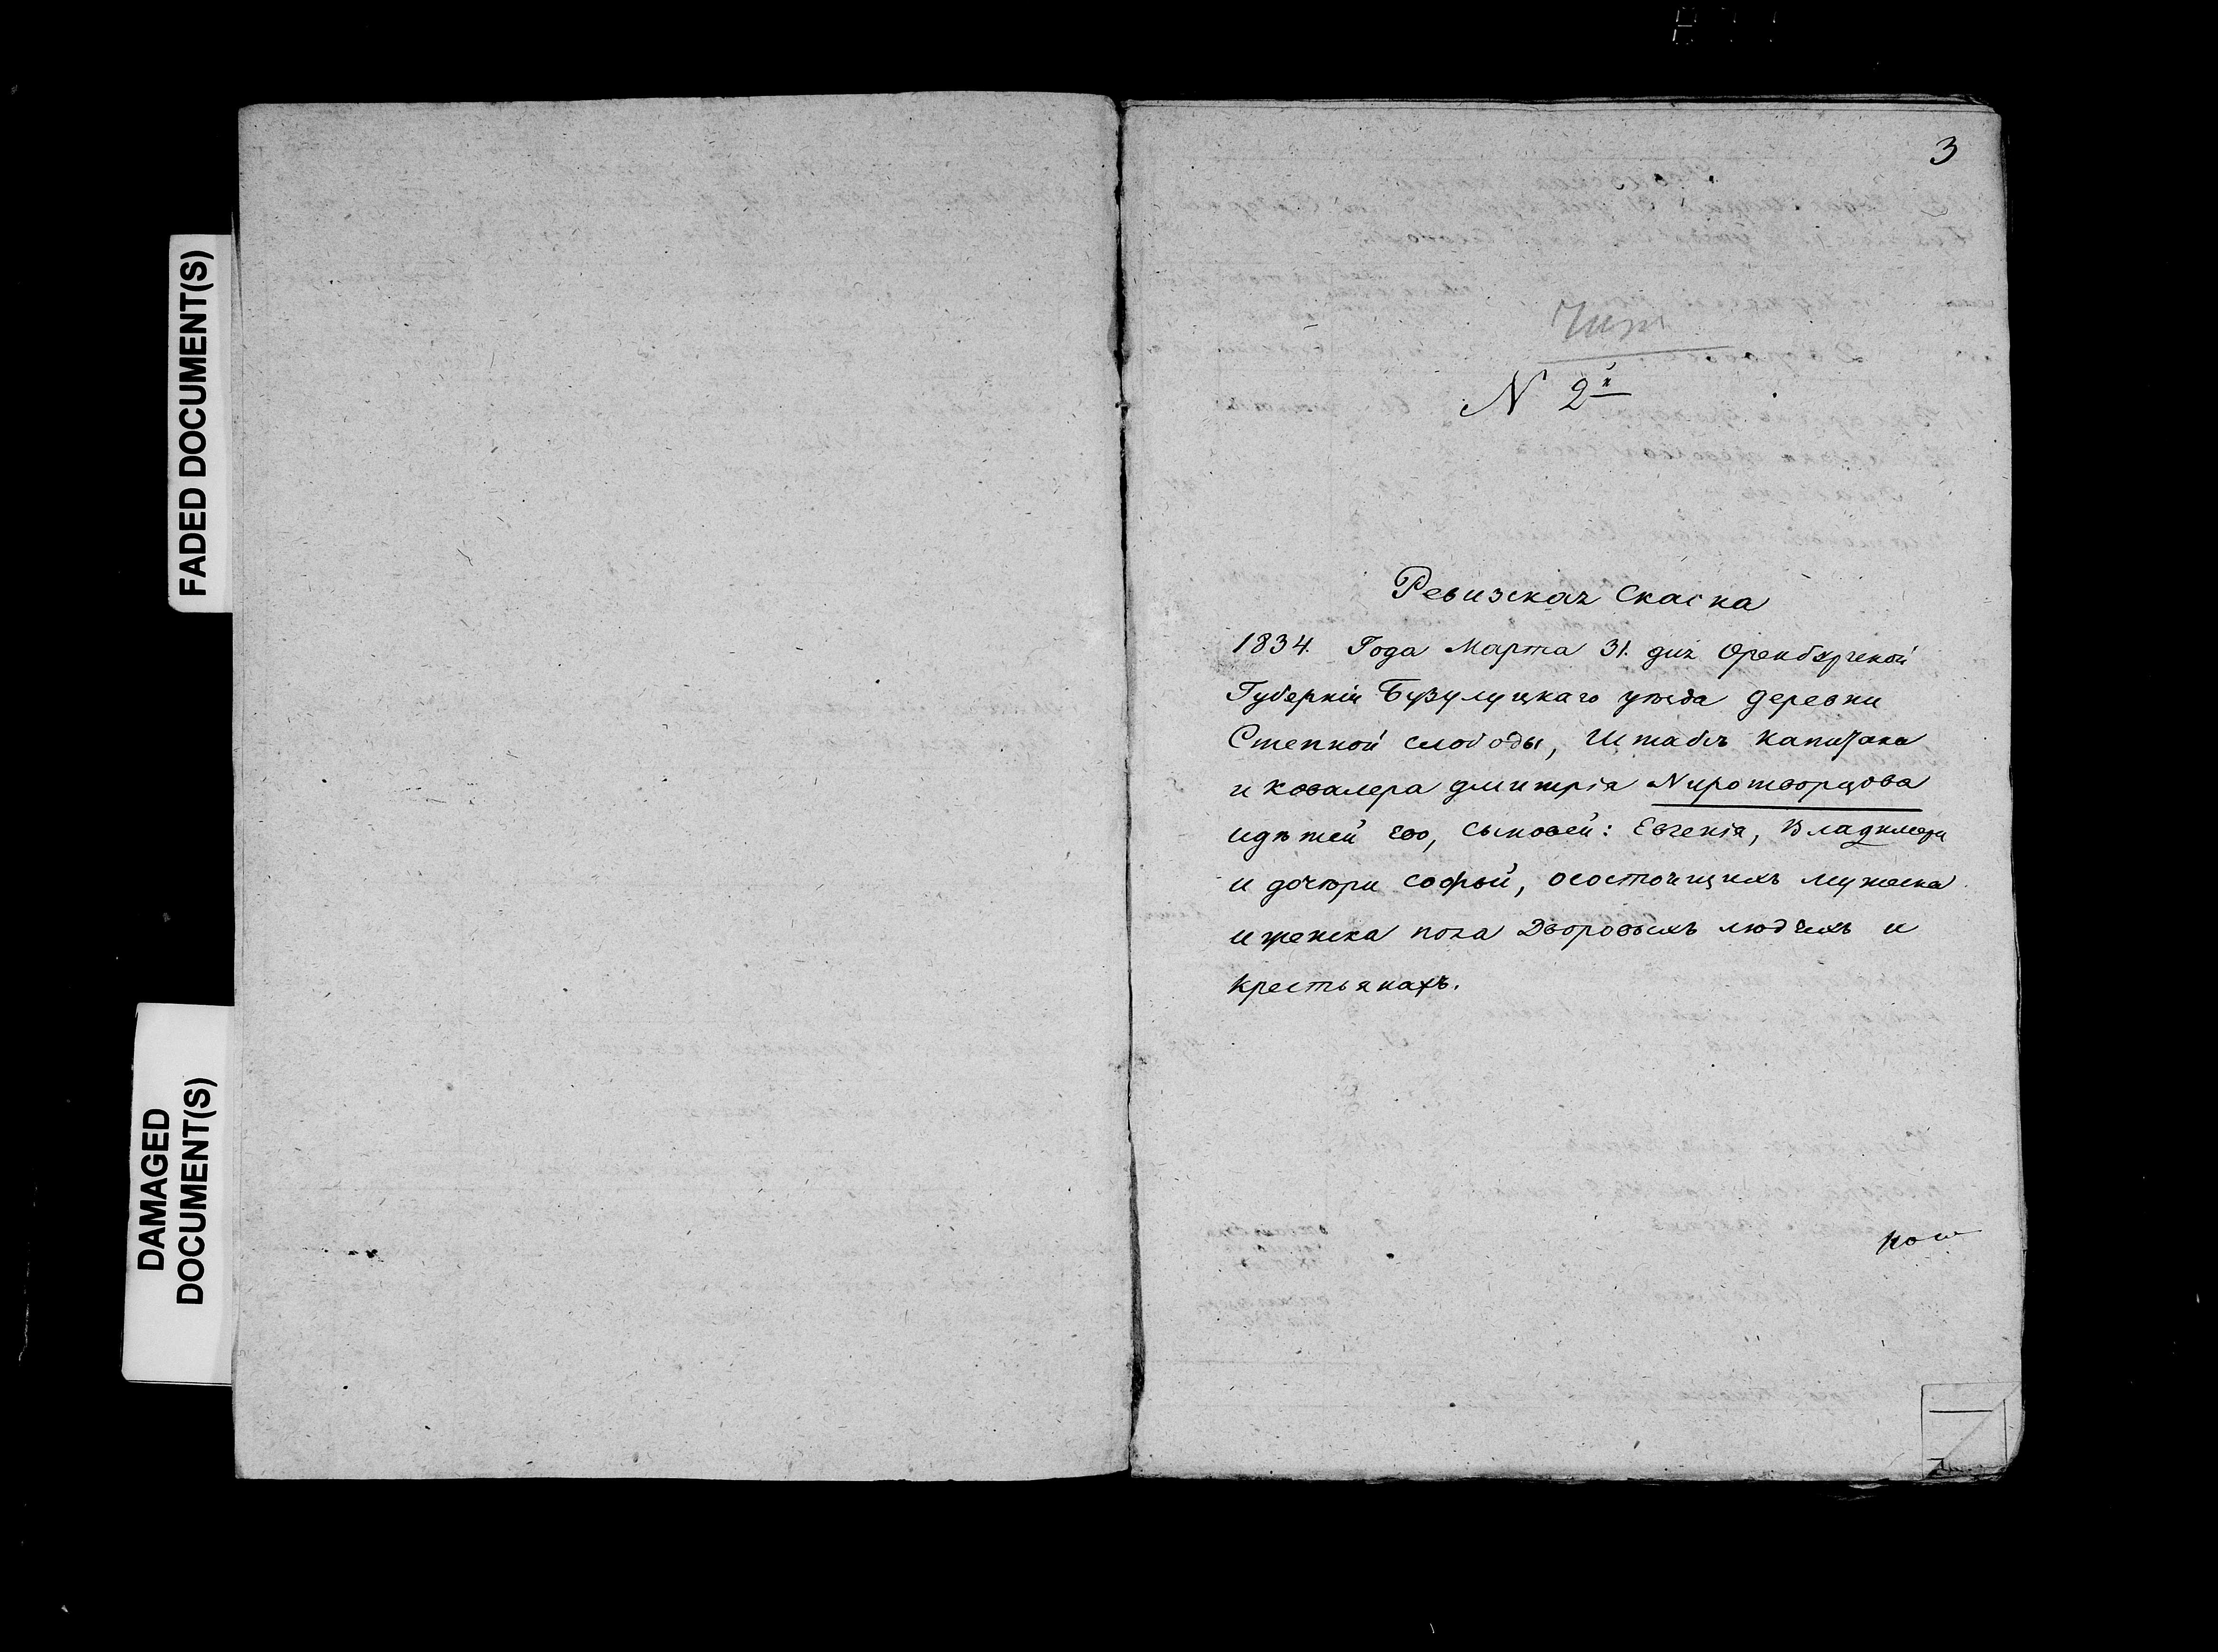 FADED DOCUMENT(S)
DAMAGED
DOCUMENT(S)
3
N 2й
Ревизская Скаска
1834. Года Марта 31. дня Оренбургской
Губернiи Бузулуцкаго уѣзда деревни
Степной слободы, Штабсъ Капитана
и ковалера дмитрiя Миротворцова
идѣтей его, сыновей: Евгенiя, Владимера
и дочери софьи, осостоящихъ мужеска
и женска пола Дворовыхъ людяхъ и
крестьянахъ.